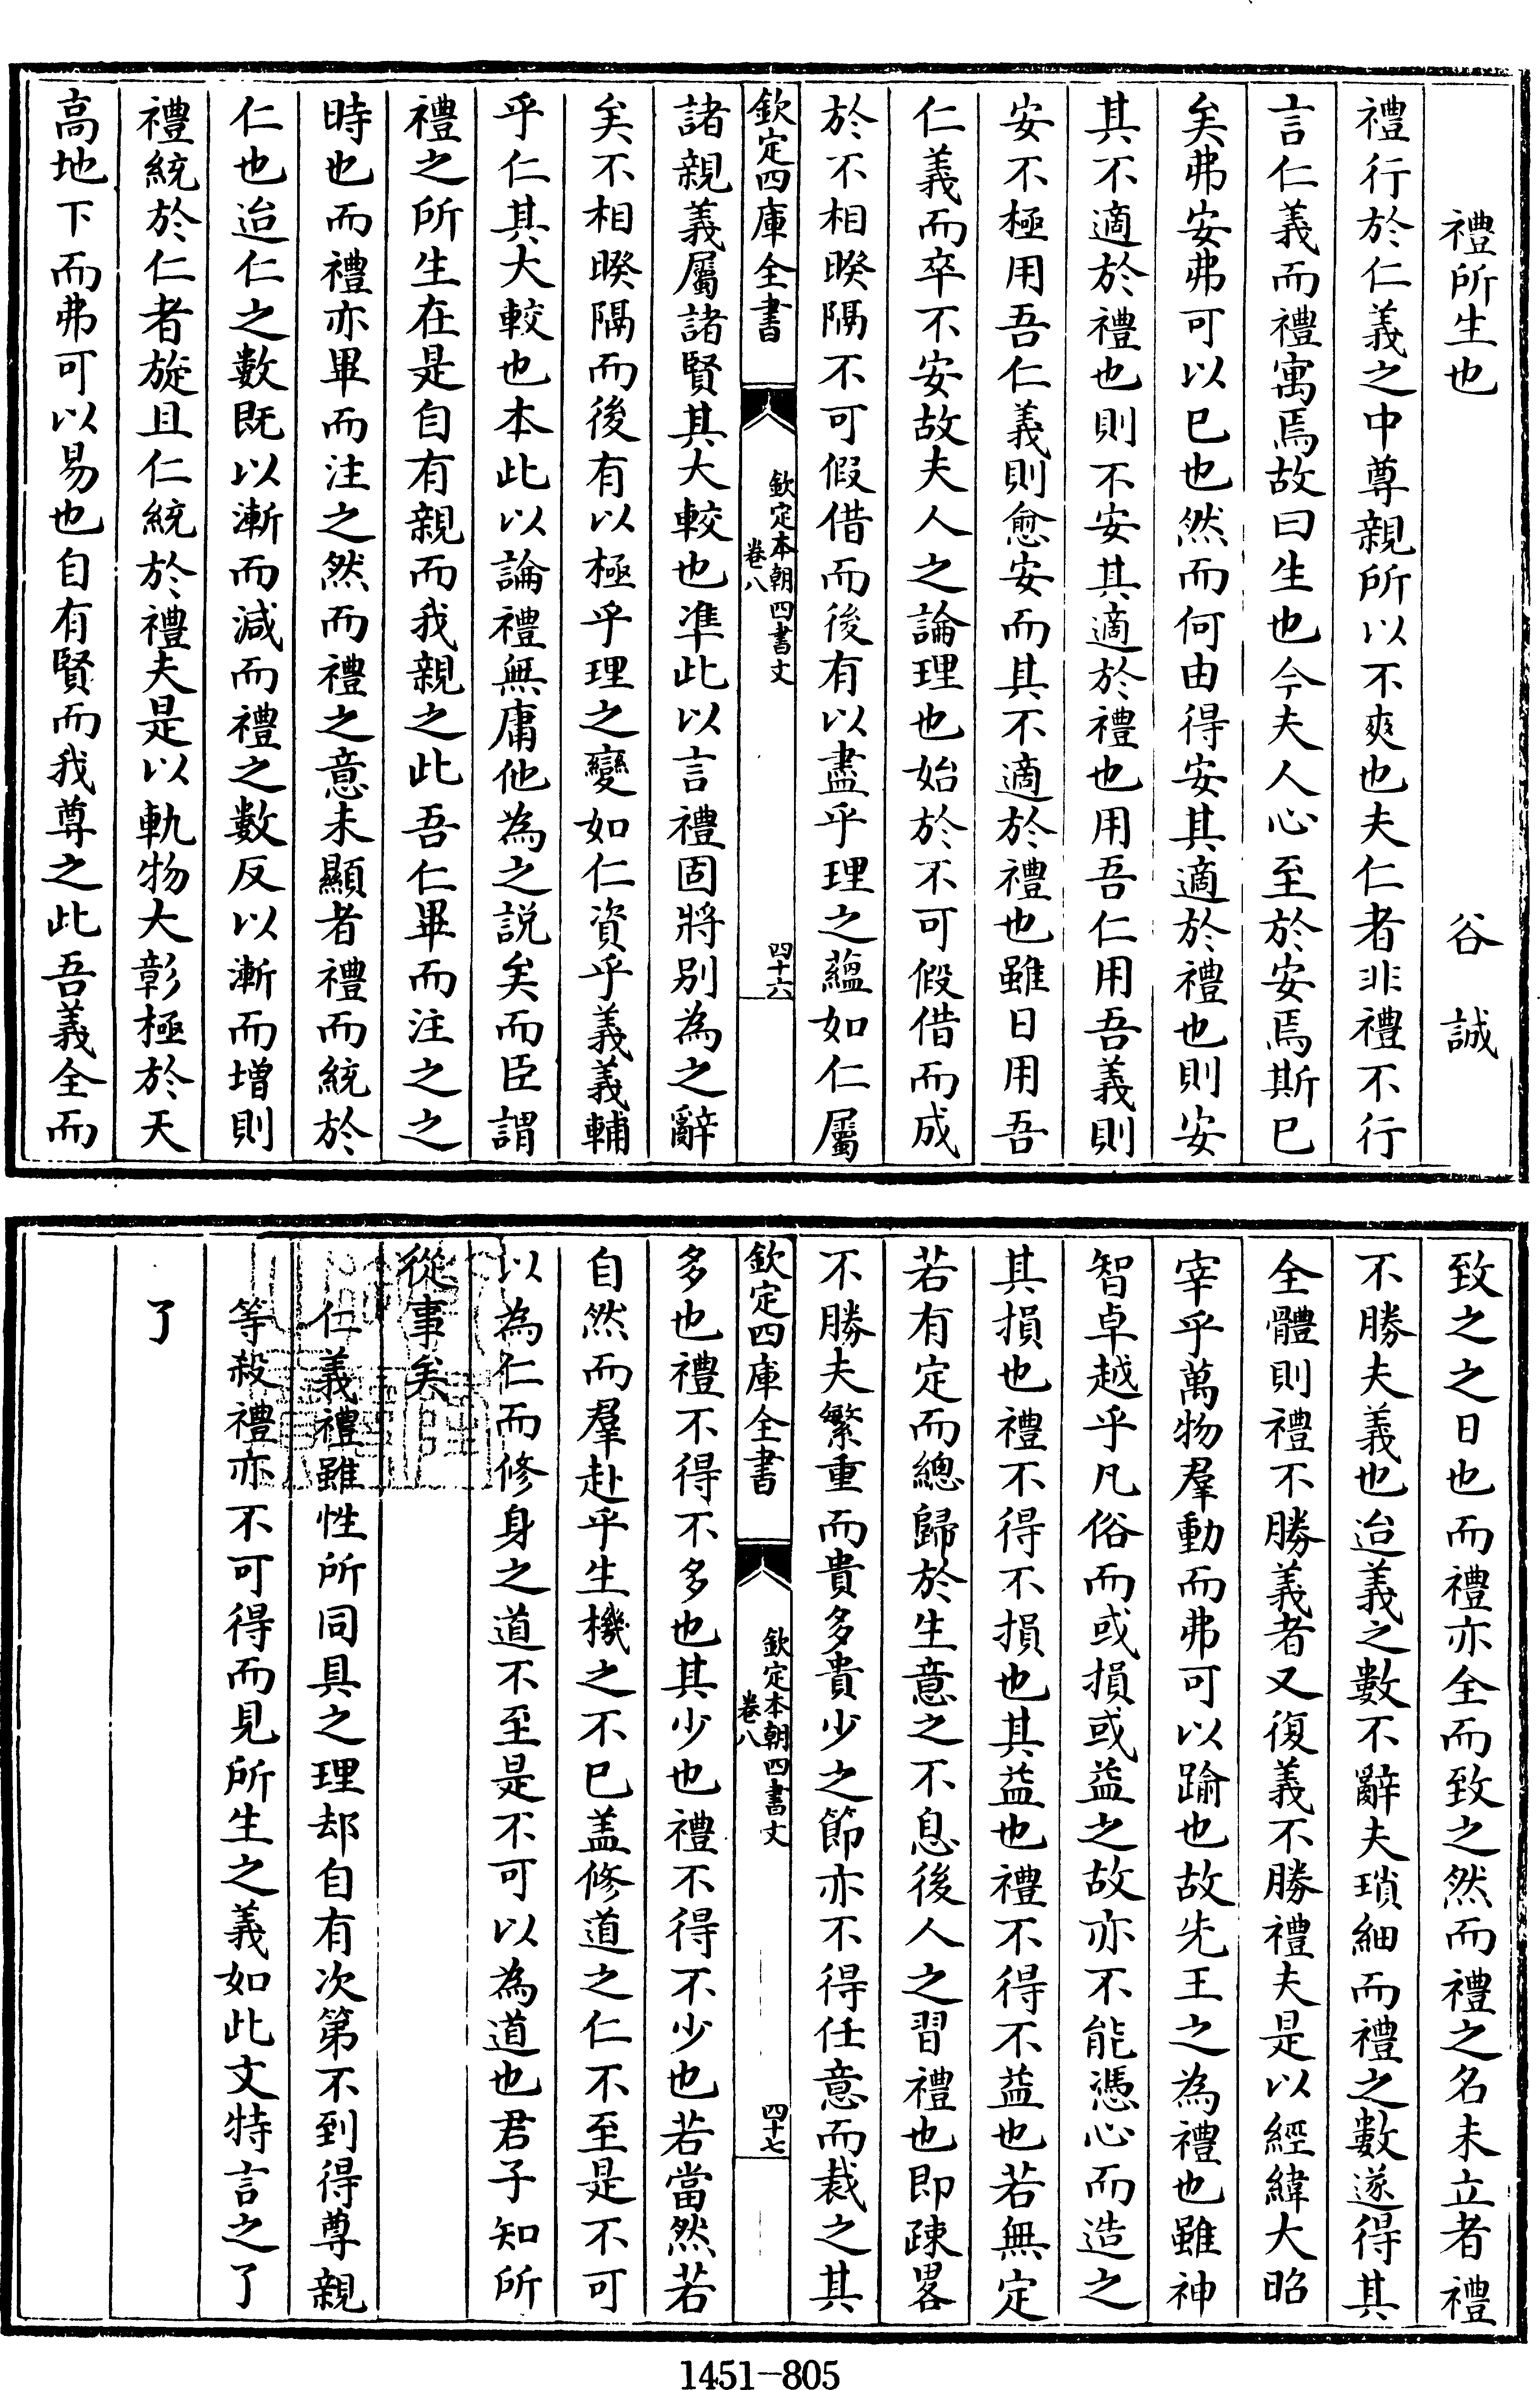 禮所生也　　谷　誠
禮行於仁義之中尊親所以不爽也夫仁者非禮不行
言仁義而禮寓焉故曰生也今夫人心至於安焉斯已
矣弗安弗可以已也然而何由得安其適於禮也則安
其不適於禮也則不安其適於禮也用吾仁用吾義則
安不極用吾仁義則愈安而其不適於禮也雖日用吾
仁義而卒不安故夫人之論理也始於不可假借而成
於不相暌隔不可假借而後有以盡乎理之蘊如仁屬
欽定四庫全書
欽定本朝四書文
卷八
四十六
諸親義屬諸賢其大較也凖此以言禮固將別為之辭
矣不相暌隔而後有以極乎理之變如仁資乎義義輔
乎仁其大較也本此以論禮無庸他為之説矣而臣謂
禮之所生在是自有親而我親之此吾仁畢而注之之
時也而禮亦畢而注之然而禮之意未顯者禮而統於
仁也迨仁之數既以漸而減而禮之數反以漸而增則
禮統於仁者旋且仁統於禮夫是以軌物大彰極於天
高地下而弗可以易也自有賢而我尊之此吾義全而
致之之日也而禮亦全而致之然而禮之名未立者禮
不勝夫義也迨義之數不辭夫瑣細而禮之數遂得其
全體則禮不勝義者又復義不勝禮夫是以經緯大昭
宰乎萬物羣動而弗可以踰也故先王之為禮也雖神
智卓越乎凡俗而或損或益之故亦不能憑心而造之
其損也禮不得不損也其益也禮不得不益也若無定
若有定而總歸於生意之不息後人之習禮也即疎畧
不勝夫繁重而貴多貴少之節亦不得任意而裁之其
欽定四庫全書
欽定本朝四書文
卷八
四十七
多也禮不得不多也其少也禮不得不少也若當然若
自然而羣赴乎生機之不已盖修道之仁不至是不可
以為仁而修身之道不至是不可以為道也君子知所
從事矣
仁義禮雖性所同具之理却自有次第不到得尊親
等殺禮亦不可得而見所生之義如此文特言之了
了
1451-805